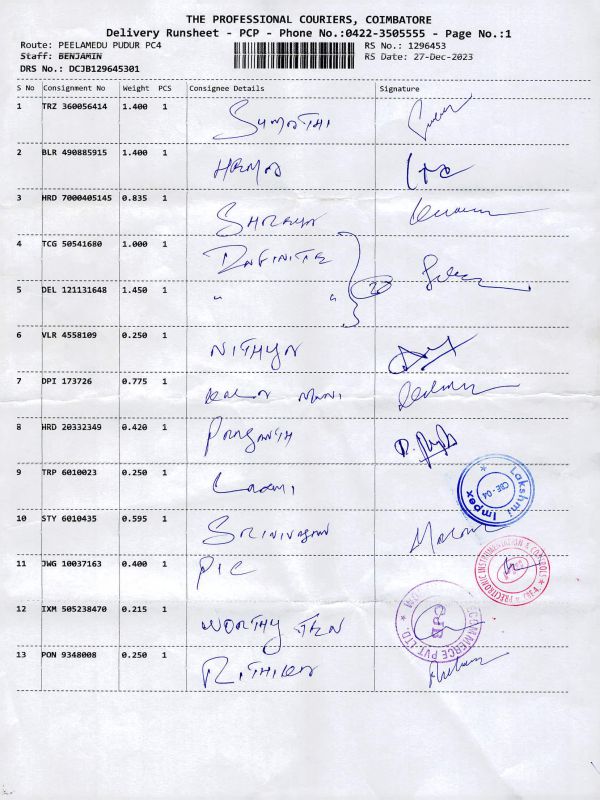 THE PROFESSIONAL COURIERS, COIMBATORE
Delivery Runsheet - PCP - Phone No.:0422-3505555 - Page No.:1
Route: PEELAMEDU PUDUR PC4 RS No.: 1296453
Staff: BENJAMIN RS Date: 27-Dec-2023
DRS No.: DCJB129645301
S No Consignment No Weight PCS Consignee Details Signature
1 TRZ 360056414 1.400 1 SUMATHI
2 BLR 490885915 1.400 1 HEMA
3 HRD 7000405145 0.835 1
4 TCG 50541680 1.000 1 INFINITE
5 DEL 121131648 1.450 1 " " 20
6 VLR 4558109 0.250 1 NITHYA
7 DPI 173726 0.775 1 MANI
8 HRD 20332349 0.420 1 PRASANTH
9 TRP 6010023 0.250 1 Laxmi
Lakshmi Impex
CBE-04
10 STY 6010435 0.595 1 SRINIVASAN
11 JWG 10037163 0.400 1 PIC
PRECITRONIC INSTRUMENTATION & CONTROL
12 IXM 505238470 0.215 1 WORTHY TEN
COMMERCE PVT LTD.
CJB
13 PON 9348008 0.250 1